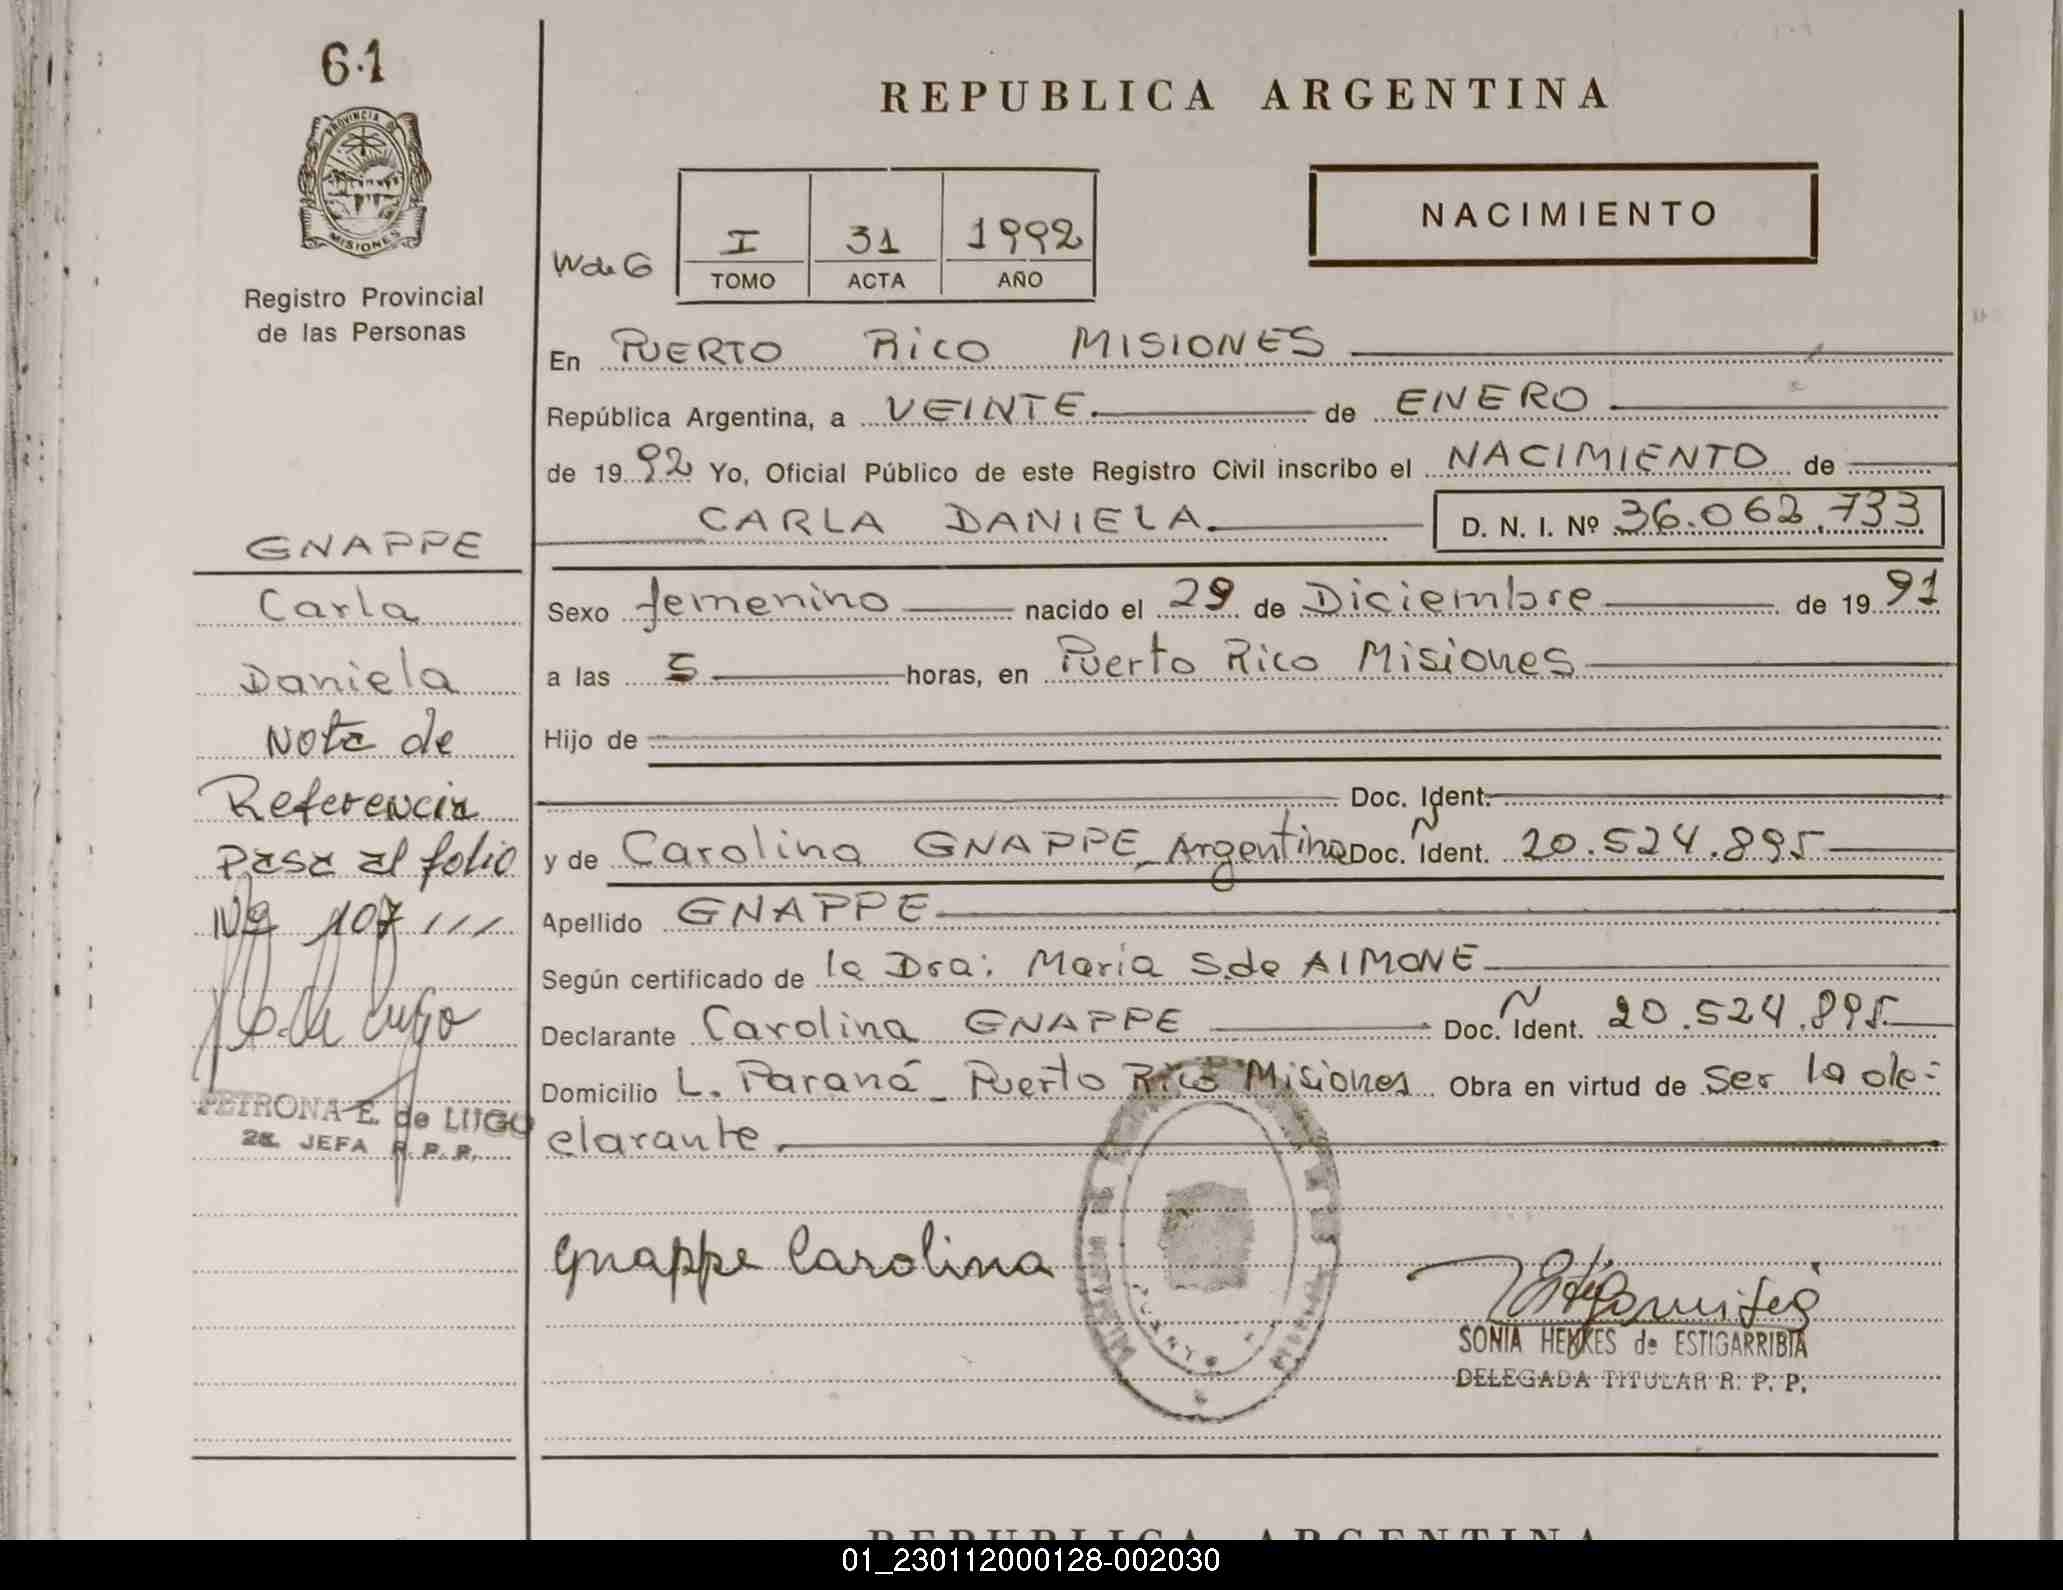 61
PROVINCIA DE
MISIONES
Registro Provincial
de las Personas
GNAPPE
Carla
Daniela
Nota de
Referencia
Pasa al folio
Nº 107 ///
PETRONA E. de LUGO
2a. JEFA R. P. P.
REPUBLICA ARGENTINA
NACIMIENTO
W de G
I 31 1992
TOMO ACTA AÑO
En PUERTO RICO MISIONES
República Argentina, a VEINTE. de ENERO
de 1992 Yo, Oficial Público de este Registro Civil inscribo el NACIMIENTO de
CARLA DANIELA. D. N. I. Nº 36.062.733
Sexo femenino nacido el 29 de Diciembre de 1991
a las 5 horas, en Puerto Rico Misiones
Hijo de
Doc. Ident.
y de Carolina GNAPPE_Argentina Doc. Ident. 20.524.895
Apellido GNAPPE
Según certificado de la Dra: Maria S.de AIMONE
Declarante Carolina GNAPPE Doc. Ident. 20.524.895
Domicilio L. Paraná_ Puerto Rico Misiones Obra en virtud de ser la de=
clarante.
Gnappe Carolina
SONIA HENKES de ESTIGARRIBIA
DELEGADA TITULAR R. P. P.
REPUBLICA ARGENTINA
01_230112000128-002030